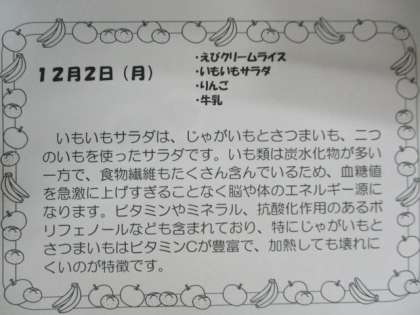 12月2日（月）
・えびクリームライス
・いもいもサラダ
・りんご
・牛乳
いもいもサラダは、じゃがいもとさつまいも、二つ
のいもを使ったサラダです。いも類は炭水化物が多い
一方で、食物繊維もたくさん含んでいるため、血糖値
を急激に上げすぎることなく脳や体のエネルギー源に
なります。ビタミンやミネラル、抗酸化作用のあるポ
リフェノールなども含まれており、特にじゃがいもと
さつまいもはビタミンCが豊富で、加熱しても壊れに
くいのが特徴です。